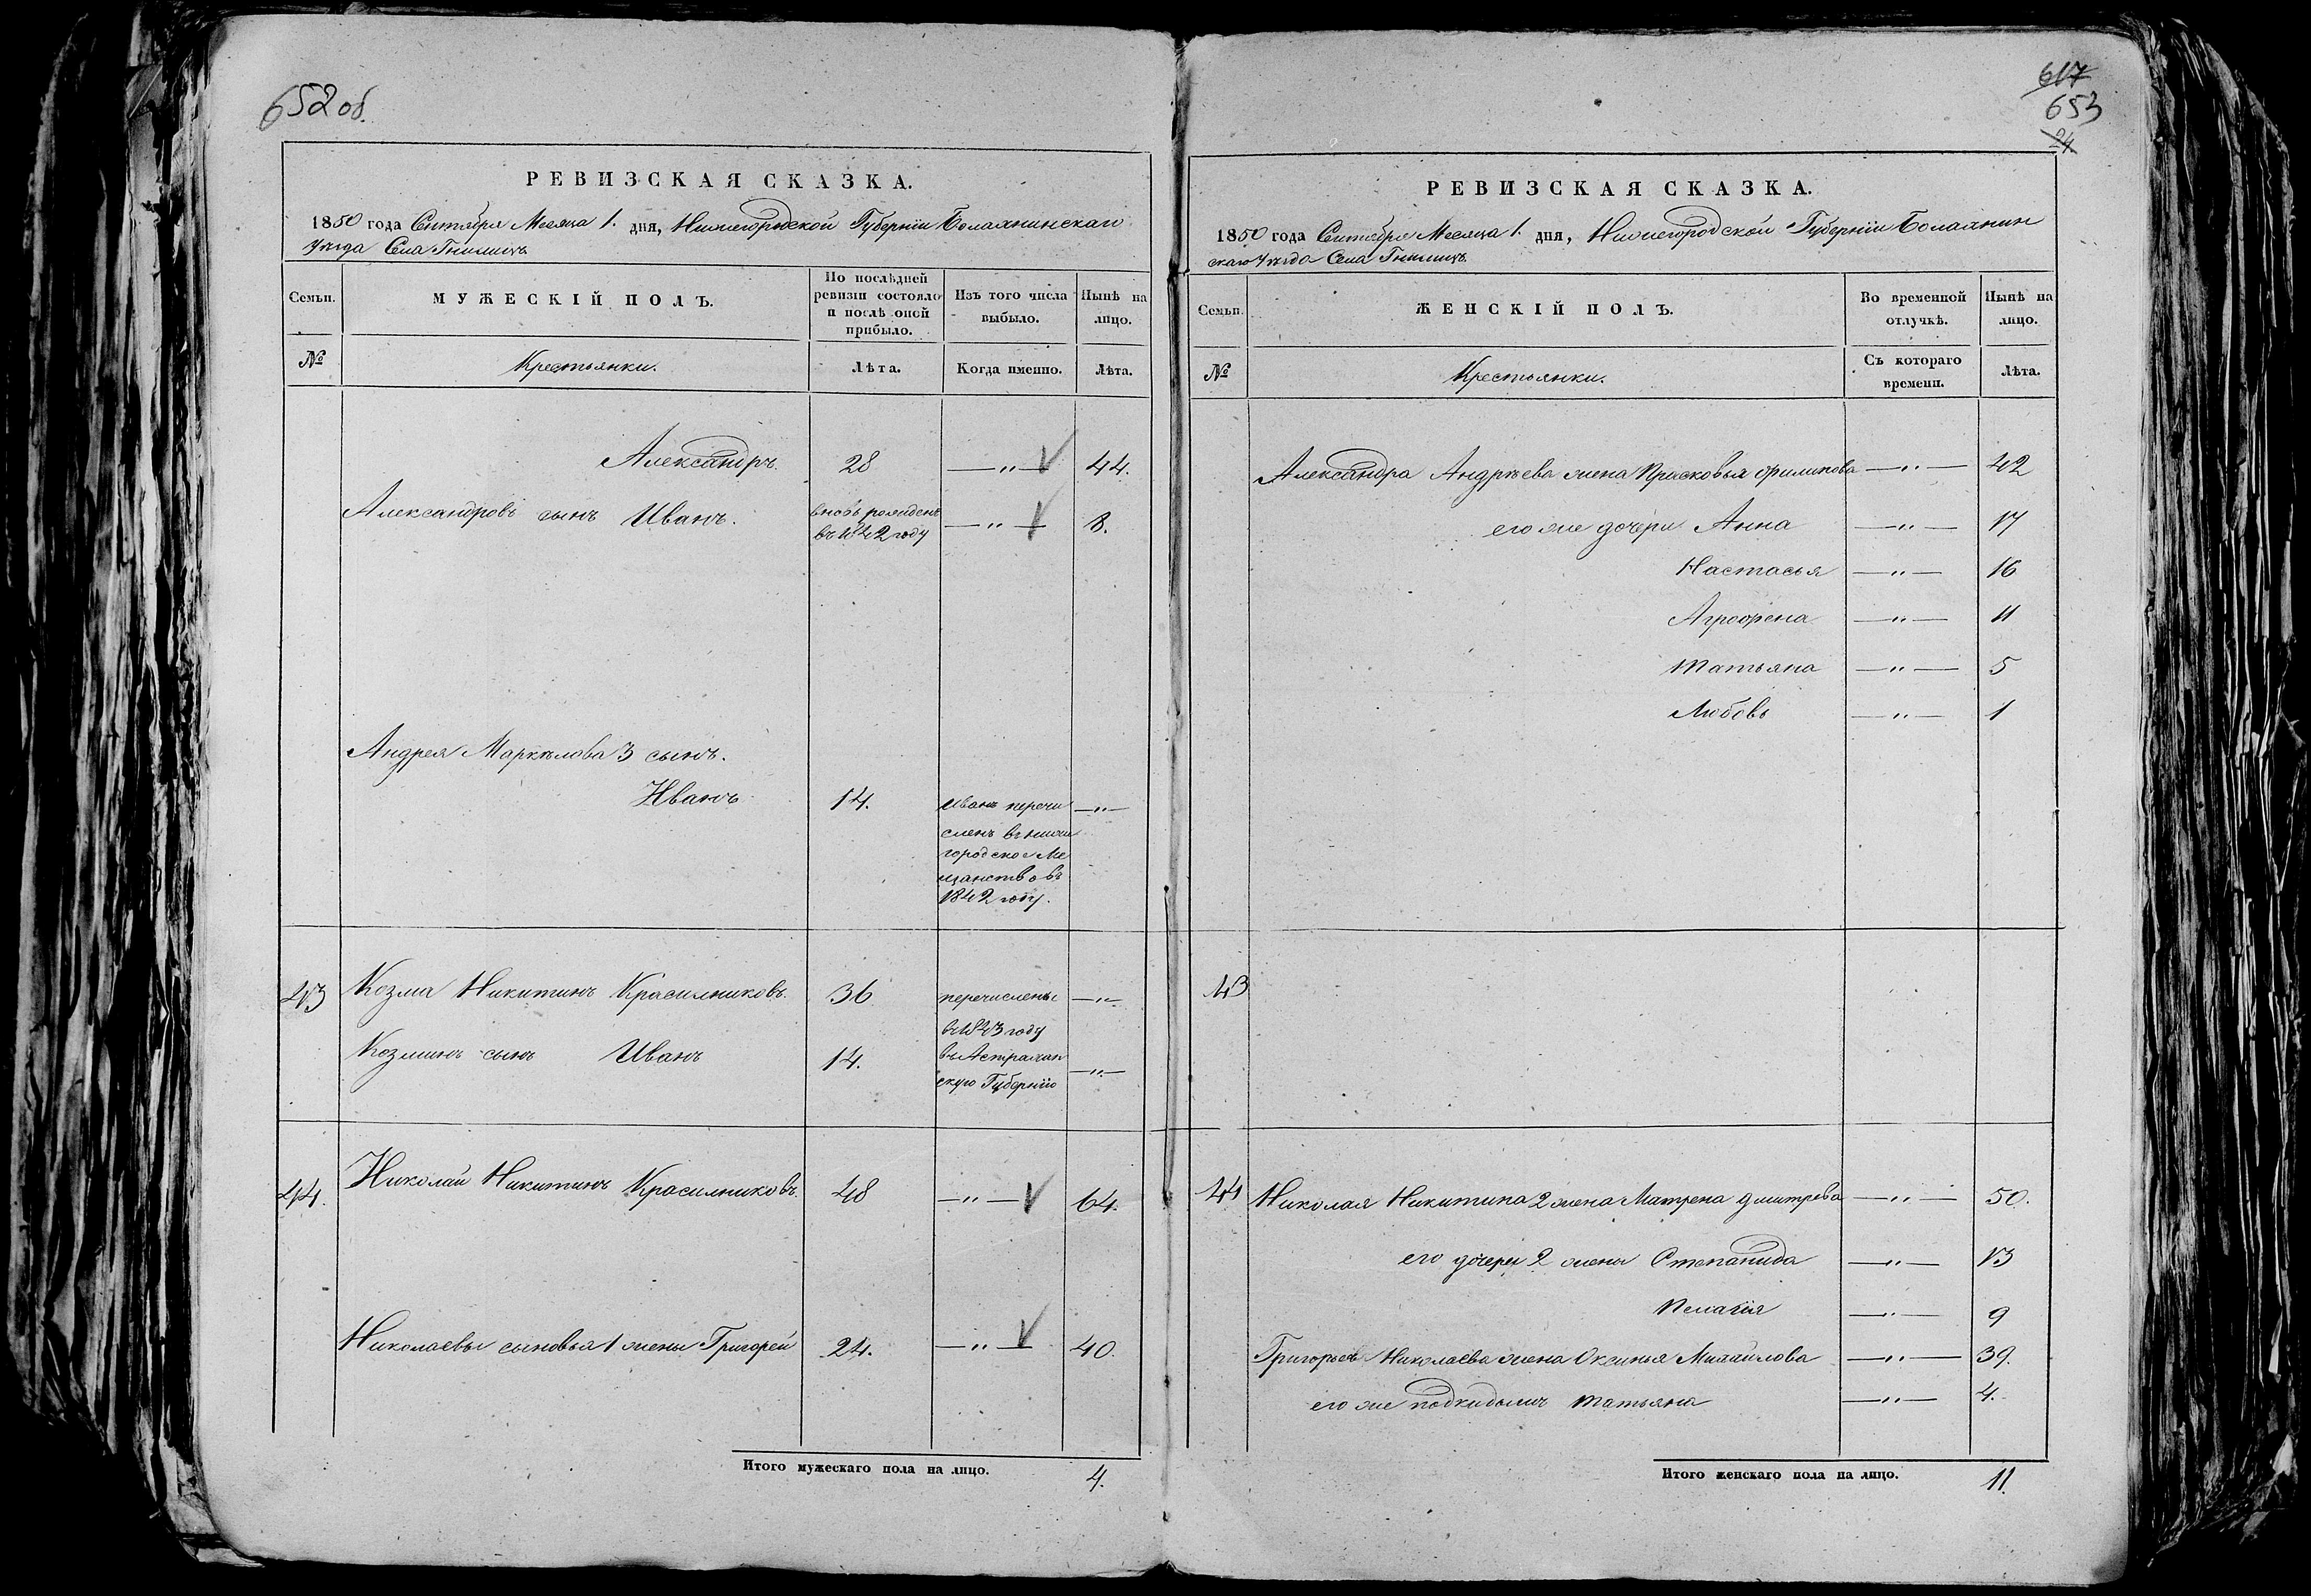 652 об.
РЕВИЗСКАЯ СКАЗКА.
1850 года Сентября Месяца 1. дня, Нижегородской Губернiи Балахнинскаго
Уезда Села Гнилицъ
Семьи.
МУЖЕСКIЙ ПОЛЪ.
По послѣдней
ревизiи состояло
и послѣ оной
прибыло.
Изъ того числа
выбыло.
Нынѣ на
лицо.
№
Крестьянки.
Лѣта.
Когда именно.
Лѣта.
Александръ 28 —"— 44.
Александровъ сынъ Иванъ. вновь рожденъ —"— 8.
въ 1842 году
Андрея Маркелова 3 сынъ.
Иванъ 14. Иванъ перечи —"—
сленъ въ нижне
городское Ме
щанство въ
1842 году.
43 Козма Никитинъ Красилниковъ. 36 перечислены —"—
въ 1843 году
Козминъ сынъ Иванъ 14. въ Астрахан
скую Губернiю —"—
44. Николай Никитинъ Красилниковъ. 48 —"— 64.
Николаевы сыновья 1 жены Григорей 24. —"— 40.
Итого мужескаго пола на лицо. 4.
617
653
24
РЕВИЗСКАЯ СКАЗКА.
1850 года Сентября Месяца 1. дня, Нижегородской Губернiи Балахнин
скаго Уезда Села Гнилицъ.
Семьи.
ЖЕНСКIЙ ПОЛЪ.
Во временной
отлучкѣ.
Нынѣ на
лицо.
№
Крестьянки.
Съ котораго
времени.
Лѣта.
Александра Андрѣева жена Прасковья Филипова —"— 42
его же дочери Анна —"— 17
Настасья —"— 16
Агрофена —"— 11
Татьяна —"— 5
Любовь —"— 1
43
44 Николая Никитина 2 жена Матрена Дмитрева —"— 50.
его дочери 2 жены Степанида —"— 13
Пелагiя —"— 9
Григорья Николаева жена Оксинья Михайлова —"— 39.
его же подкидышъ Татьяна —"— 4.
Итого женскаго пола на лицо. 11.